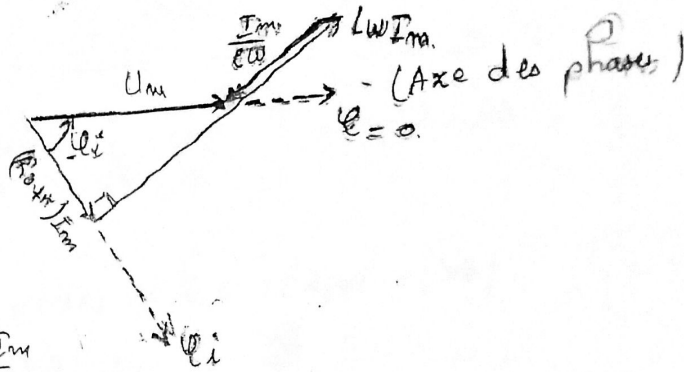 Im/cω
LωIm.
Um
- (Axe des phases)
φ = 0.
φi
(R0+r)Im
φi
Im